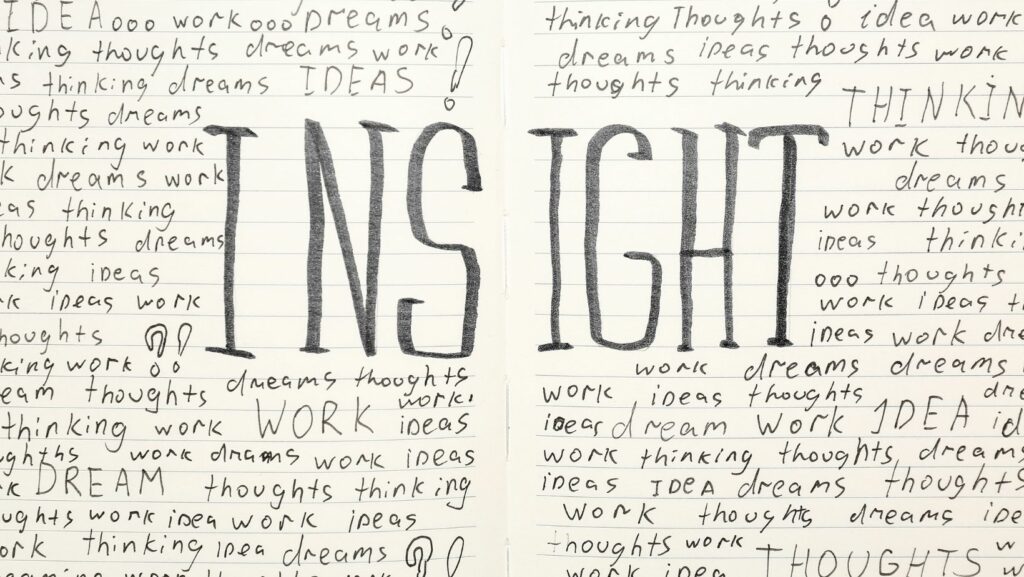 IDEA ooo work ooo Dreams
king thoughts dreams work !
s thinking dreams IDEAS
oughts dreams
thinking work
k dreams work
eas thinking
houghts dreams
king ideas
rk ideas work
houghts ?!
king work
eam thoughts dreams thoughts
work.
thinking work WORK ideas
ughths work dreams work ideas
k DREAM thoughts thinking
ughts work idea work ideas
ork thinking idea dreams ?!
INSIGHT
thinking Thoughts o idea work
dreams ideas thoughts work
thoughts thinking
THINKIN
work thoug
dreams
work thought
ideas thinki
ooo thoughts
work ideas th
ideas work dre
work dreams dreams
work ideas thoughts dre
ideas dream work IDEA id
work thinking thoughts, dreams
ideas IDEA dreams thoughts
work thoughts dreams ide
thoughts work THOUGHTS w
work idea